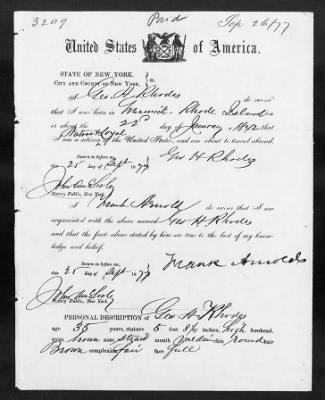 3209 Paid Sep 26/77
United States of America.
STATE OF NEW YORK,
CITY AND COUNTY OF NEW YORK, } ss.
I Geo H Rhodes do swear
that I was born in Warwick Rhode Island
on or about the 22d day of January 1842 that
I am a Native & Loyal citizen of the United States, and am about to travel abroad.
Sworn to before me,
this 25 day of Sept 1877
Geo H Rhodes
Notary Public, New York
I Frank Arnold do swear that I am
acquainted with the above named Geo H Rhodes
and that the facts above stated by him are true to the best of my know-
ledge and belief.
Sworn to before me,
this 25 day of Sept 1877
Frank Arnold
Notary Public, New York
PERSONAL DESCRIPTION OF Geo H Rhodes
age 35 years, stature 5 feet 8 1/2 inches, high forehead,
eyes brown nose straight mouth medium chin round hair
Brown complexion fair face full